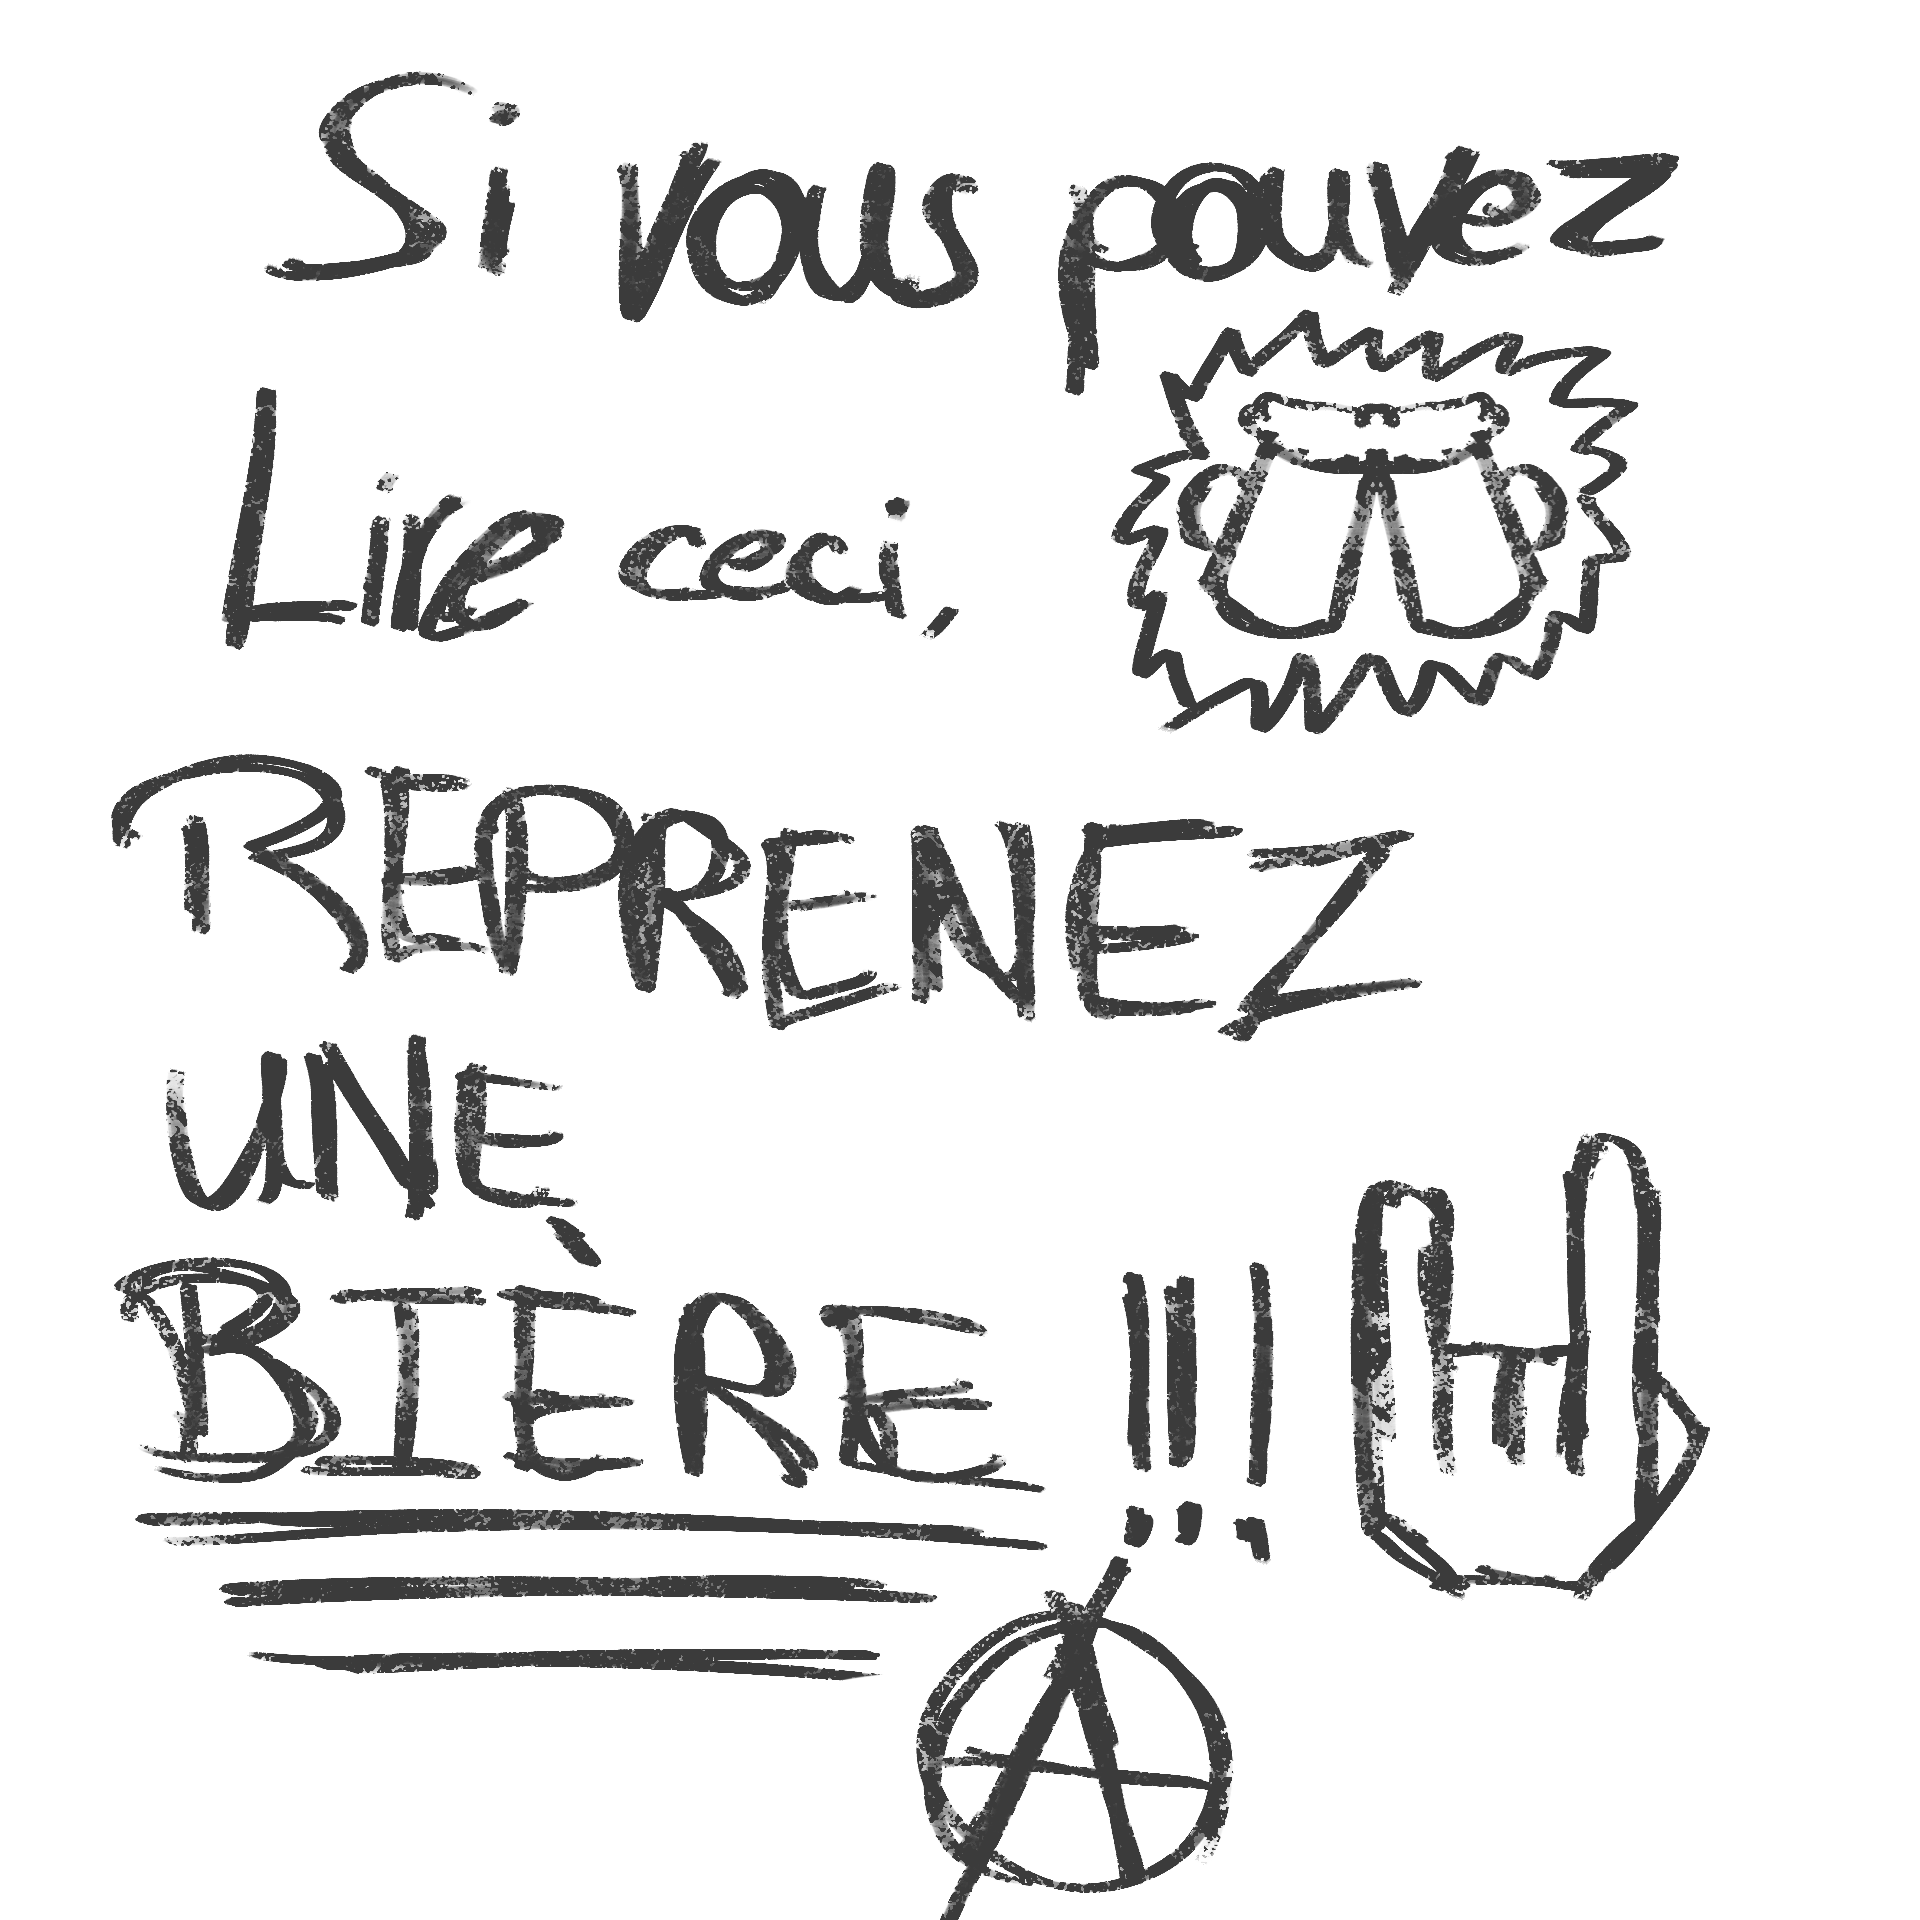 Si vous pouvez
Lire ceci,
REPRENEZ
UNE
BIÈRE !!!
A